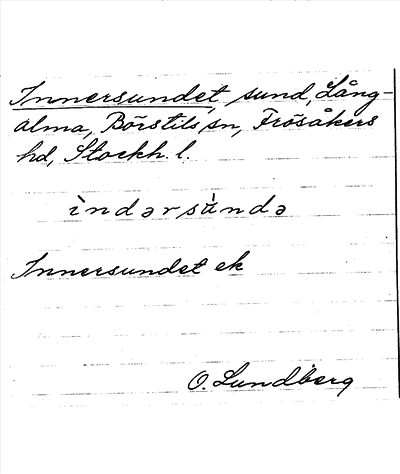 Innersundet, sund, Lång-
alma, Börstils sn, Frösåkers
hd, Stockh. l.
ìndərsùndə
Innersundet ek
O. Lundberg